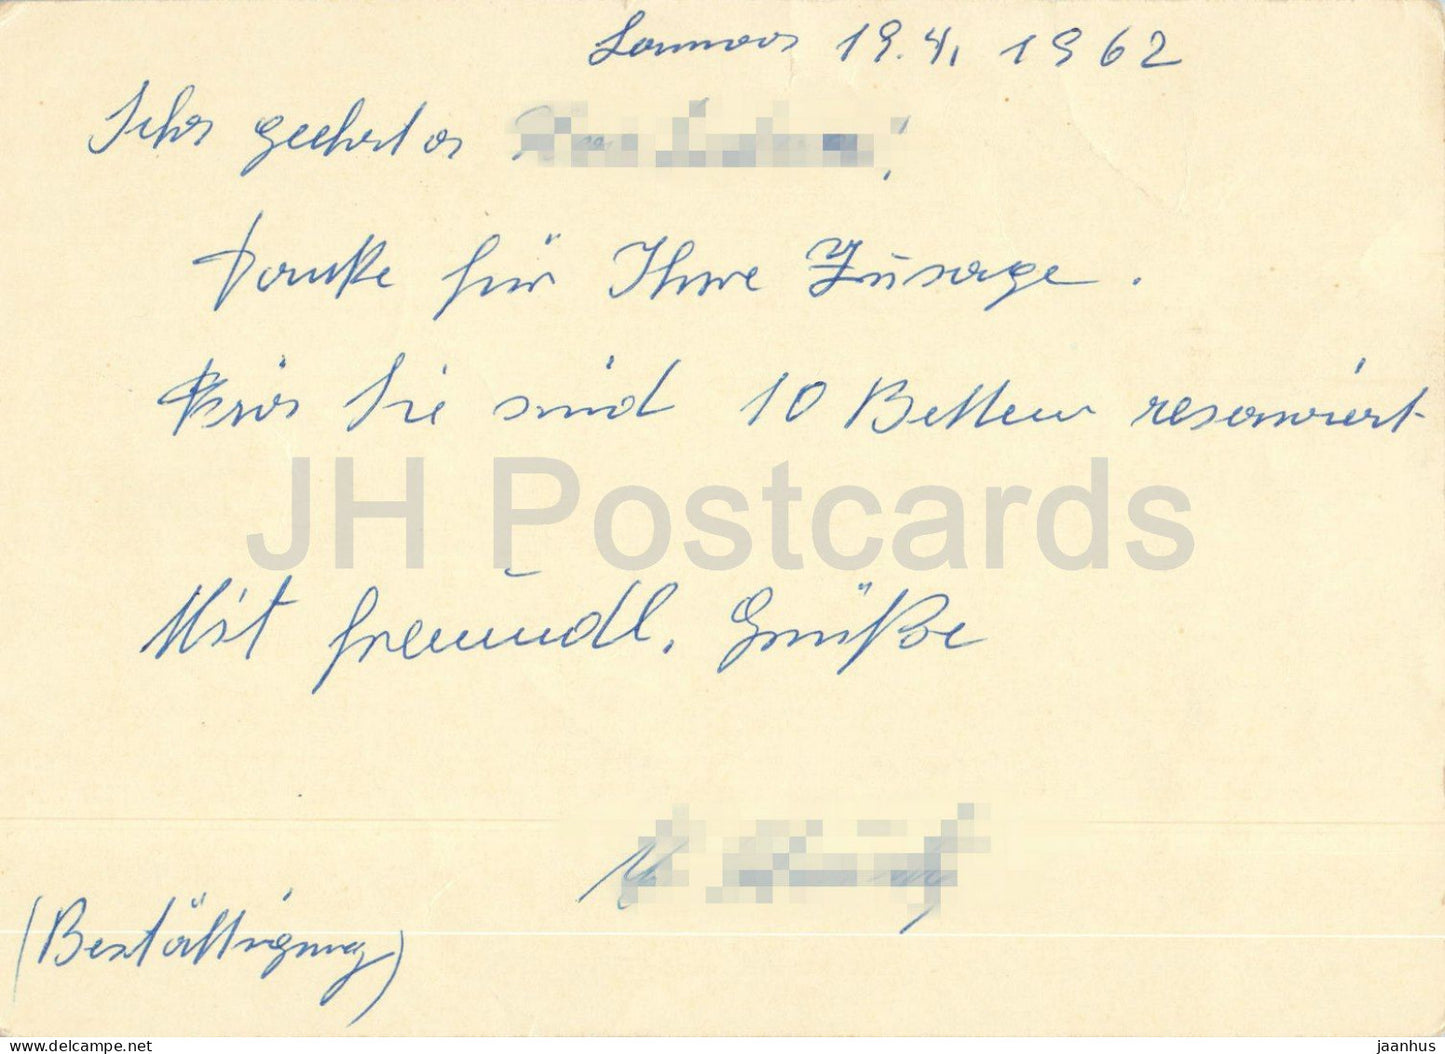 Lermoos 19.4. 1962
Sehr geehrter
Danke für Ihre Zusage.
Für Sie sind 10 Betten reserviert
JH Postcards
Mit freundl. Grüße
(Bestättigung)
www.delcampe.net
jaanhus